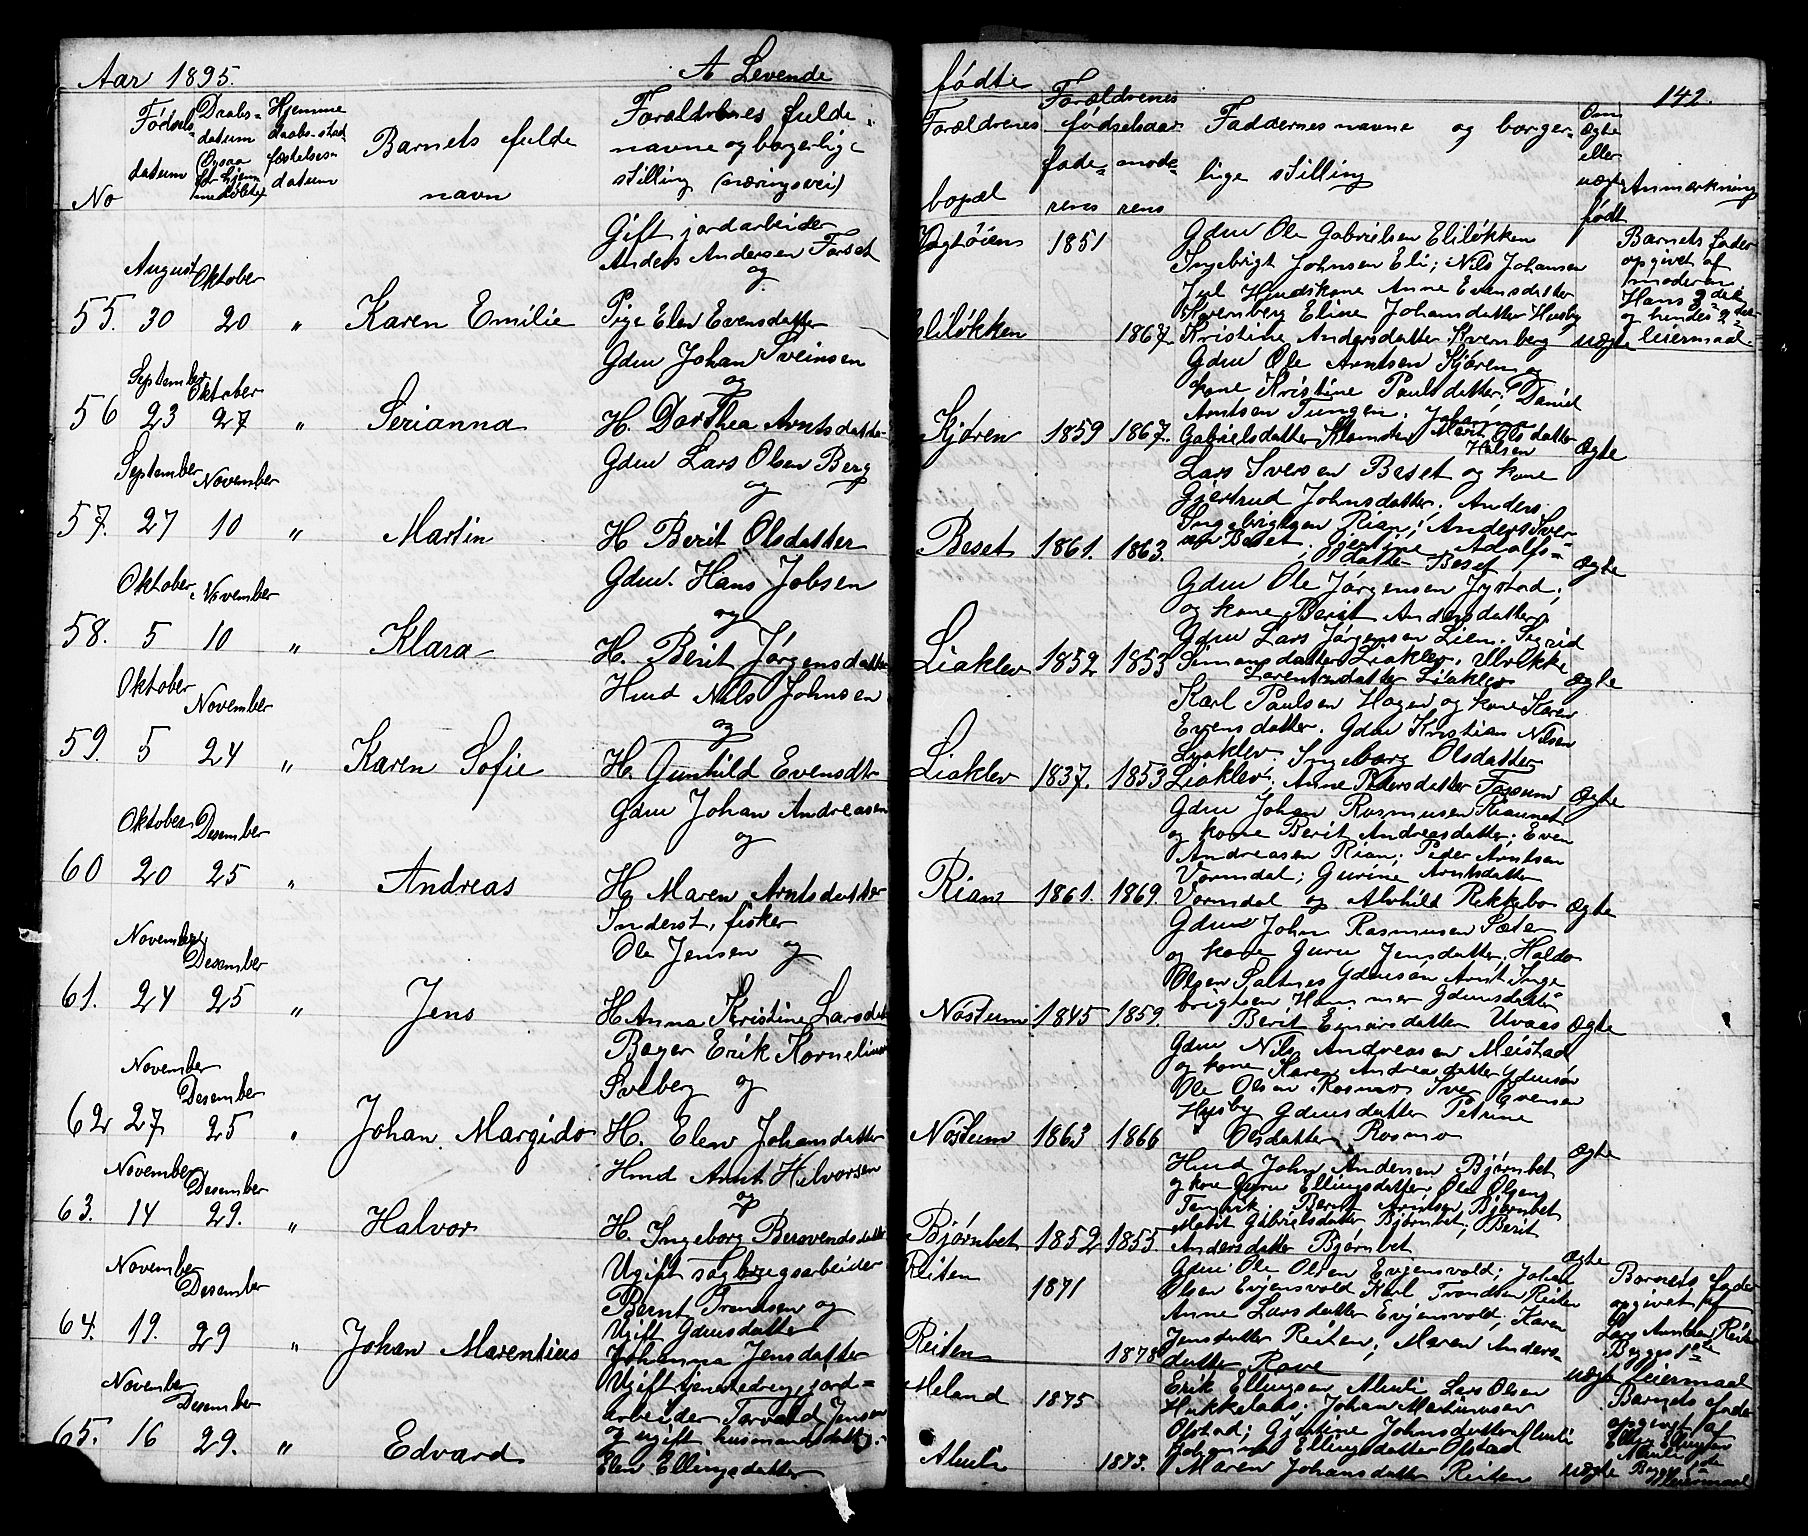 Aar 1895.
A Levende
No
Fødsels-
datum
Daabs-
datum
(Ogsaa
for hjem-
medøbte)
Hjemme
daabs-stad
fæstelses-
datum
Barnets fulde
navn
Forældrenes fulde
navne og borgerlige
stilling (næringsvei)
August
Oktober
55. 30 20 " Karen Emilie
Gift jordarbeider
Anders Andersen Forset
og
Pige Elen Evensdatter
September
Oktober
56 23 27 " Serianna
Gdm Johan Sveinsen
og
H. Dorthea Arntsdatter
September
November
57. 27 10 " Martin
Gdm Lars Olsen Berg
og
H Berit Olsdatter
Oktober
November
58. 5 10 " Klara
Gdm. Hans Jobsen
og
H. Berit Jørgensdatter
Oktober
November
59. 5 24 " Karen Sofie
Hmd Nils Johnsen
og
H. Gunhild Evensdtr
Oktober
Desember
60 20 25 " Andreas
Gdm Johan Andreasen
og
H. Maren Arntsdatter
November
Desember
61. 24 25 " Jens
Inderst, fisker
Ole Jensen og
H Anna Kristine Larsdat
November
Desember
62 27 25 " Johan Margido
Bager Erik Kornelius
Solberg og
H. Elen Johansdatter
November
Desember
63. 14 29. " Halvor
Hmd Arnt Halvorsen
og
H. Ingeborg Bersvendsdatter
November
Desember
64. 19. 29 " Johan Marentius
Ugift sagbrugsarbeider
Bernt Trondsen og
Ugift Gdmsdatter
Johanna Jensdatter
November
Desember
65. 16 29. " Edvard
Ugift tjenestedreng jord-
arbeider Torvald Jensen
og ugift husmandsdatter
Elen Ellingsdatter
fødte
142.
Forældrenes
bopæl
Forældrenes
fødselsaar
fade-
rens
mode-
rens
Faddernes navne og borger-
lige stilling
Om
ægte
eller
uægte
født
Anmerkning
1851
Eliløkken 1867.
Gdm Ole Gabrielsen Eliløkken
Ingebrigt Johnsen Eli; Nils Johansen
Hmdskone Anne Evensdatter
Kvernberg Eline Johansdatter Husby
Kristine Andersdatter Kvernberg
uægte
Barnets fader
opgivet af
moderen
Hans 2det
og hendes 2det
leiermaal.
Kjøren 1859 1867.
Gdm Ole Arntsen Kjøren og
kone Kristine Paulsdatter; Daniel
Arntsen Tungen;
Gabrielsdatter Marit Olsdatter
Halsen
Ægte
Beset 1861. 1863.
Lars Iversen Beset og kone
Gjertrud Johnsdatter. Anders
Ingebrigtsen Rian; Anders Iver-
sen Beset, Gjertine Adolfs-
datter Beset
Ægte
Liaklev 1852 1853
Gdm Ole Jørgensen Jystad;
og kone Berit Andersdatter
Gdm Lars Jørgensen Lien. Sigrid
Simonsdatter Liaklev. Ulrikke
Lorentsdatter Liaklev
ægte
Liaklev 1837. 1853
Karl Paulsen Hagen og kone Karen
Evensdatter. Gdm Kristian Nilsen
Liaklev. Ingeborg Olsdatter
Liaklev; Anne Pedersdatter Fossum
Ægte
Rian 1861. 1869.
Gdm Johan Rasmusen
og kone Berit Andreasdatter. Even
Andreasen Rian; Peder Arntsen
Vormdal; Gurine Arntsdatter
Vormdal og Alvhild Rekkebo
Ægte
Nøstum 1845 1859.
Gdm John Rasmusen Sæter
og kone Guru Jensdatter, Haldo
Olsen Saltnes Gdmsøn Arnt Inge-
brigtsen Hammer Gdmsdatter
Berit Einarsdatter Uvaas
Ægte
Nøstum 1863 1866
Gdm Nils Andreasen Meistad
og kone Karen Andreadatter Gdmsøn
Ole Olsen Rosmo Iver Evensen
Husby Gdmsdatter Petrine
Olsdatter Rosmo
Ægte
Bjørnbet 1852 1855.
Hmd John Andersen Bjørnbet
og kone Guru Ellingsdatter, Ole Olsen
Berit Arntsen Bjørnbet
Marit Gabrielsdatter Bjørnbet; Berit
Andersdatter Bjørnbet
Ægte
Reiten 1871
Reiten 1878
Gdm Ole Olsen Evjensvold; Johan
Olsen Evjensvold Karl Trondsen Reiten
Anne Larsdatter Evjensvold; Karen
Jensdatter Reiten; Maren Anders-
datter Rove
uægte
Barnets fader
opgivet af
Lars Arntsen Reiten
Begges 1ste
leiermaal
Meland 1875
Almli 1873.
Erik Ellingsen Almli Lars Olsen
Hukkelaas; Johan Martinusen
Olstad; Gjertine Johnsdatter Almli
Johanna Ellingsdatter Olstad
Maren Johansdatter Reiten
uægte
Barnets fader
opgivet af
Elling Ellingsen
Almli
Begges 1ste
leiermaal